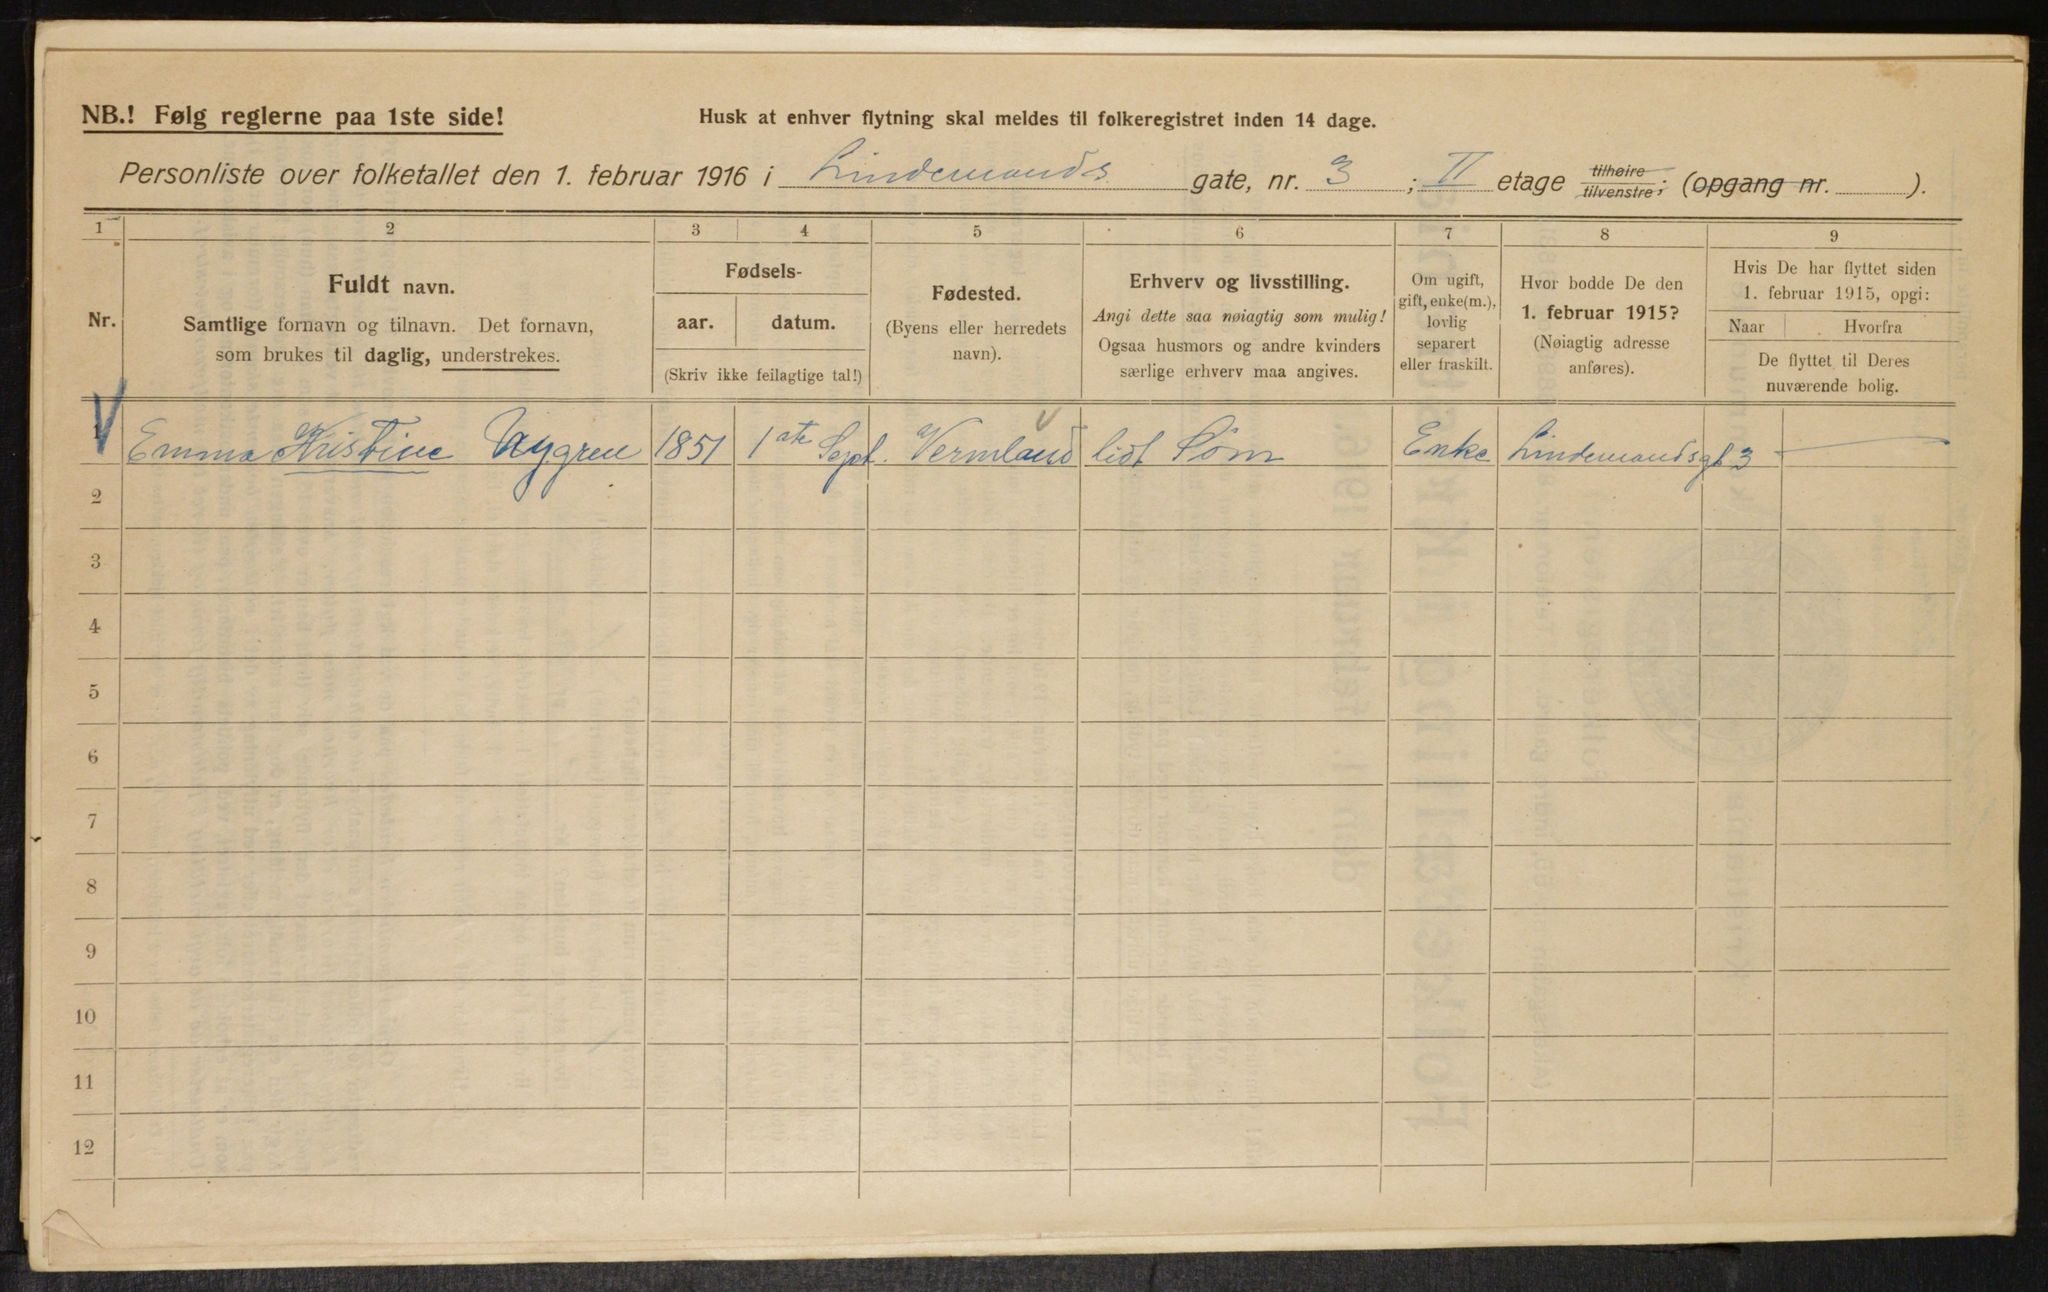 NB.! Følg reglerne paa 1ste side!
Husk at enhver flytning skal meldes til folkeregistret inden 14 dage.
Personliste over folketallet den 1. februar 1916 i Lindemands gate, nr. 3 ; II etage tilhøire tilvenstre; (opgang nr. ).
1 2 3 4 5 6 7 8 9
Nr.
Fuldt navn.
Samtlige fornavn og tilnavn. Det fornavn,
som brukes til daglig, understrekes.
Fødsels-
aar. datum.
(Skriv ikke feilagtige tal!)
Fødested.
(Byens eller herredets
navn).
Erhverv og livsstilling.
Angi dette saa nøiagtig som mulig!
Ogsaa husmors og andre kvinders
særlige erhverv maa angives.
Om ugift,
gift, enke(m.),
lovlig
separert
eller fraskilt.
Hvor bodde De den
1. februar 1915?
(Nøiagtig adresse
anføres).
Hvis De har flyttet siden
1. februar 1915, opgi:
Naar Hvorfra
De flyttet til Deres
nuværende bolig.
1 Emma Kristine Nygren 1851 1ste Sept. Vermland lidt Søm Enke Lindemandsgt 3
2
3
4
5
6
7
8
9
10
11
12